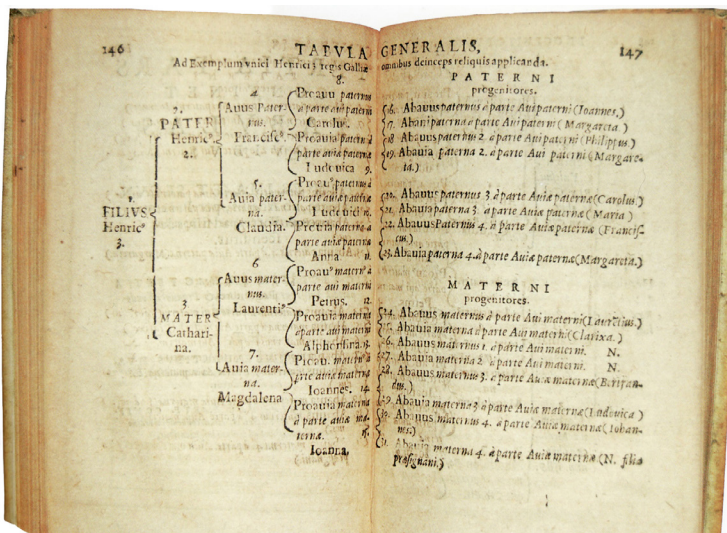 146
TABVLA GENERALIS,
147
Ad Exemplum vnici Henrici 3 regis Galliæ omnibus deinceps reliquis applicanda.
1.
FILIVS
Henric⁹
3.
2.
PATER
Henric⁹.
2.
3
MATER
Cathari-
na.
4.
Auus Pater-
nus.
Francisc⁹.
5.
Auia pater-
na.
Claudia.
6
Auus mater-
nus.
Laurenti⁹.
7.
Auia mater-
na.
Magdalena
8.
Proauu paternu
à parte aui paterni
Carolus.
Proauia paterna
parte auia paterni
Ludouica 9.
Proau⁹ paternus
parte auiæ paternæ
Ludouici
Proauia paterna
parte auiæ paternæ
Anna
Proau⁹ matern⁹ à
parte aui materni
Petrus. 12.
Proauia materna
à parte aui materni
Alphonsina. 13.
Proau. matern⁹ à
parte auiæ maternæ
Ioannes. 14.
Proauia materna
à parte auiæ ma-
ternæ.
Ioanna.
PATERNI
progenitores.
16. Abauus paternus à parte Aui paterni (Ioannes.)
17. Abauia paterna à parte Aui paterni (Margareta.)
18 Abauus paternus 2. à parte Aui paterni (Philippus.)
19. Abauia paterna 2. à parte Aui paterni (Margare-
ta.)
20. Abauus paternus 3 à parte Auiæ paternæ (Carolus.)
21. Abauia paterna 3. à parte Auiæ paternæ (Maria)
22. Abauus Paternus 4. à parte Auiæ paternæ (Francis-
cus.)
23. Abauia paterna 4. à parte Auiæ paternæ (Margareta.)
MATERNI
progenitores.
24. Abauus maternus à parte Aui materni (Laurétius.)
25. Abauia materna à parte Aui materni (Clarixa.)
26. Abauus maternus 1. à parte Aui materni. N.
27. Abauia materna 2 à parte Aui materni. N.
28. Abauus maternus 3. à parte Auiæ maternæ (Bertran-
dus.)
29. Abauia materna 3 à parte Auiæ maternæ (Ludouica)
30. Abauus maternus 4. à parte Auiæ maternæ (Iohan-
nes.)
31. Abauia materna 4. à parte Auiæ maternæ (N. filia
præsignani.)